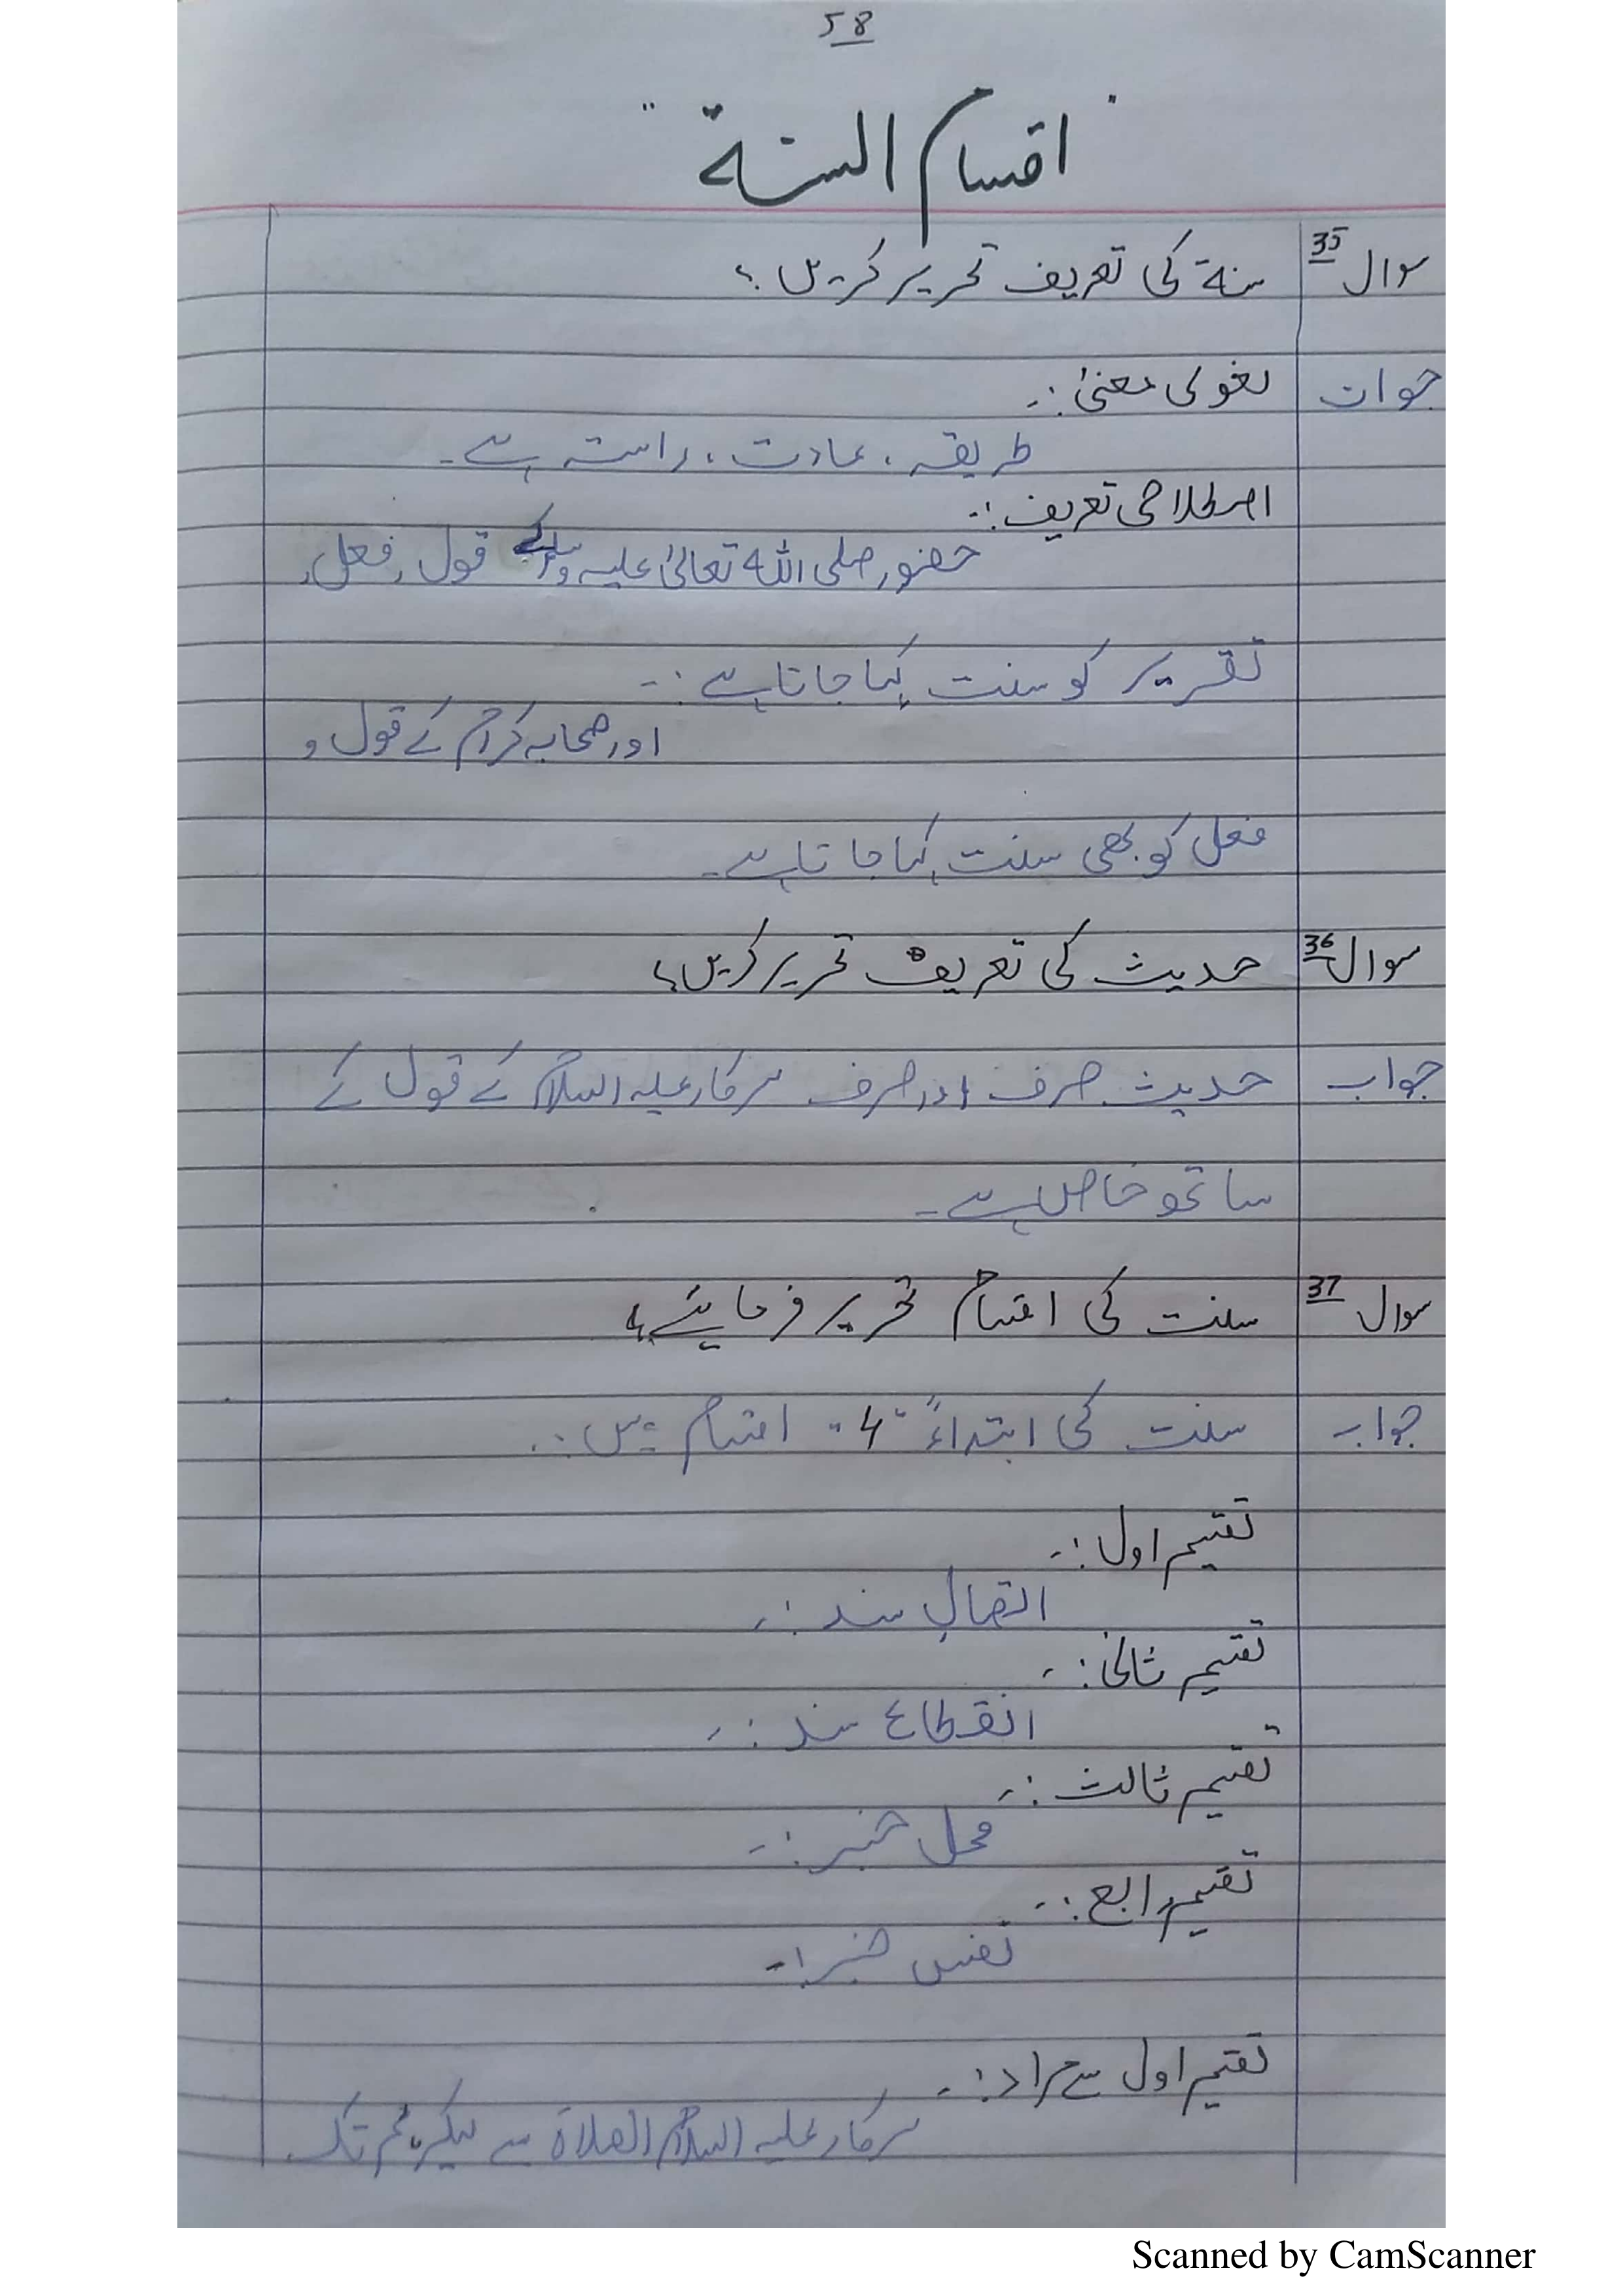 58
" اقسام السنة "
سوال 35 سنة کی تعریف تحریر کریں ؟
جوات لغوی معنیٰ :۔
طریقہ ، عادت ، راستہ ہے ۔
اصطلاحی تعریف :۔
حضور صلی اللہ تعالیٰ علیہ وسلم کے قول ، فعل ،
تقریر کو سنت کہا جاتا ہے :۔
اور صحابہ کرام کے قول و
فعل کو بھی سنت کہا جاتا ہے ۔
سوال 36 حدیث کی تعریف تحریر کریں ؟
جواب حدیث صرف اور صرف سرکار علیہ السلام کے قول کے
ساتھ خاص ہے ۔
سوال 37 سنت کی اقسام تحریر فرمایئے ؟
جواب سنت کی ابتداءً "4" اقسام ہیں :۔
تقسیم اول :۔
اتصالِ سند :۔
تقسیم ثانی :۔
انقطاع سند :۔
تقسیم ثالث :۔
محل خبر :۔
تقسیم رابع :۔
نفس خبر :۔
تقسیم اول سے مراد :۔
سرکار علیہ السلام الصلاة سے لیکر ہم تک
Scanned by CamScanner